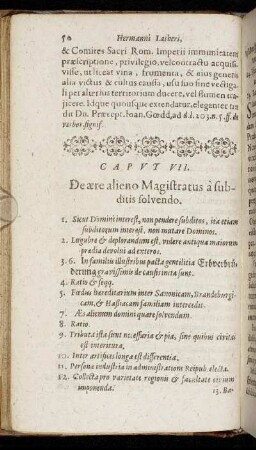 50 Hermanni Latheri,
& Comites Sacri Rom. Imperii immunitatem
præscriptione, privilegio, vel contractu acquisi-
visse, uti liceat vina, frumenta, & ejus generis
alia victus & cultus causâ, usu suo sine vectiga-
li per alterius territorium ducere, vel flumen tra-
jicere. Idque quousque extendatur, eleganter tra-
dit Dn. Præcept. Ioan. Gœdd, ad d. l. 203. n. 5. ff. de
verbor. signif.
CAPVT VII.
De ære alieno Magistratus à sub-
ditis solvendo.
1. Sicut Domini interest, non pendere subditos, ita etiam
subditorum interest, non mutare Dominos.
2. Lugubre & deplorandum est, videre antiqua maiorum
prædia devolvi ad exteros.
3. 6. In familiis illustribus pacta gentilitia Erbverbrü-
derung gravissimis de causis inita sunt.
4. Ratio & seqq.
5. Fœdus hæreditarium inter Saxonicam, Brandeburgi-
cam, & Hassiacam familiam intercessit.
7. Æs alienum domini quare solvendum.
8. Ratio.
9. Tributa ista sunt necessaria & pia, sine quibus civitas
est interitura.
10. Inter artifices longa est differentia.
11. Persona industria in administratione Reipub. electa.
12. Collecta pro varietate regionis & facultate civium
imponenda.
13. Ba-